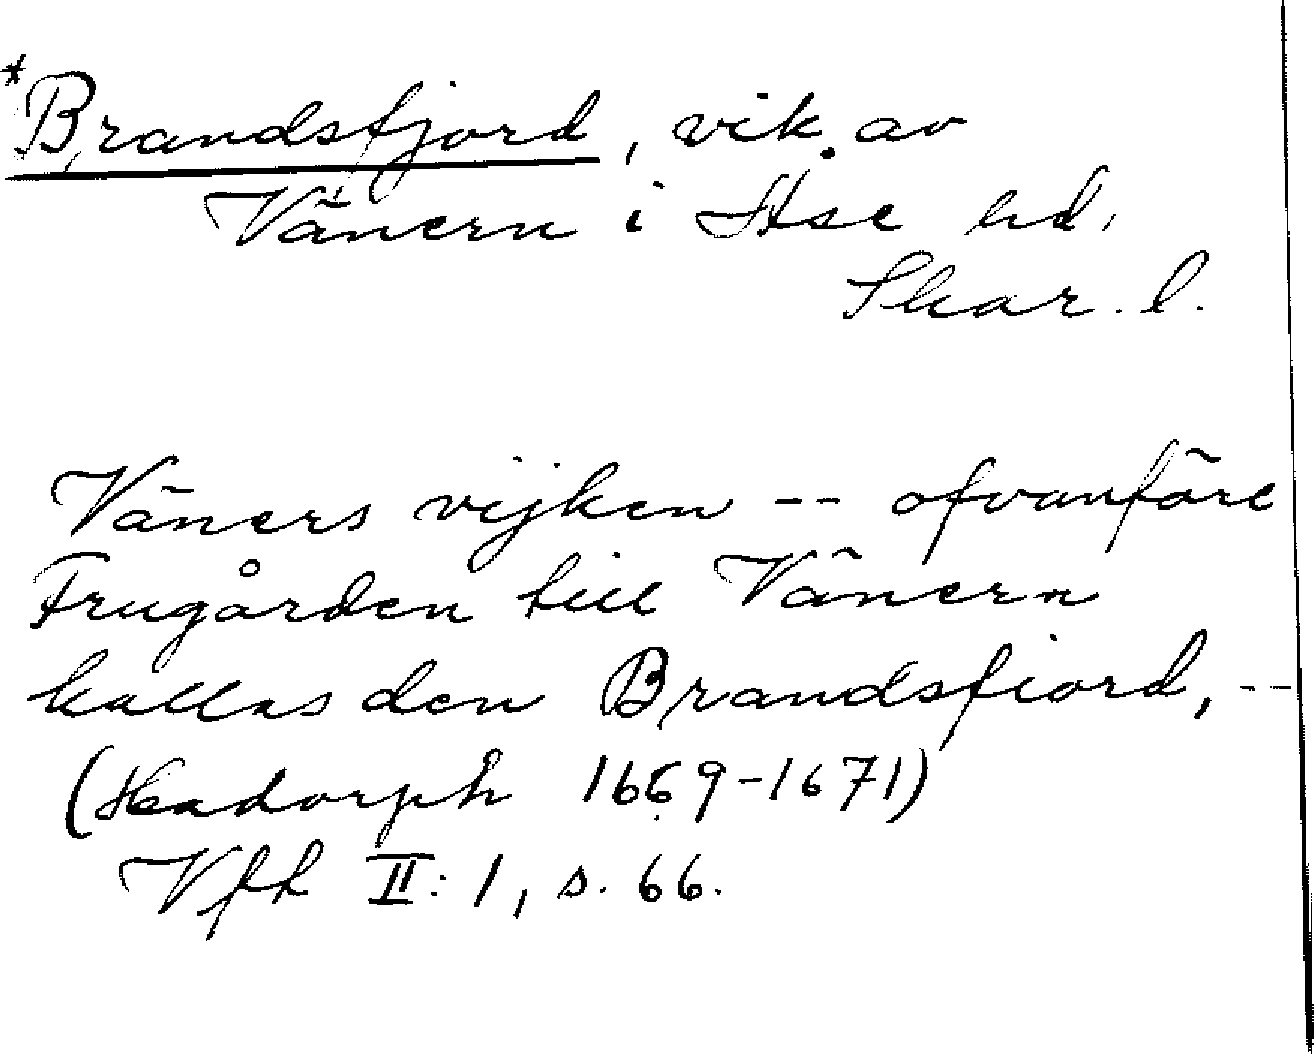 *Brandsfjord, vik av
Vänern i Åse hd,
Skar. l.
Väners vijken -- ofvanföre
Frugården till Vänern
kallas den Brandsfiord, --
(Hadorph 1669-1671)
Vfk II: 1, s. 66.